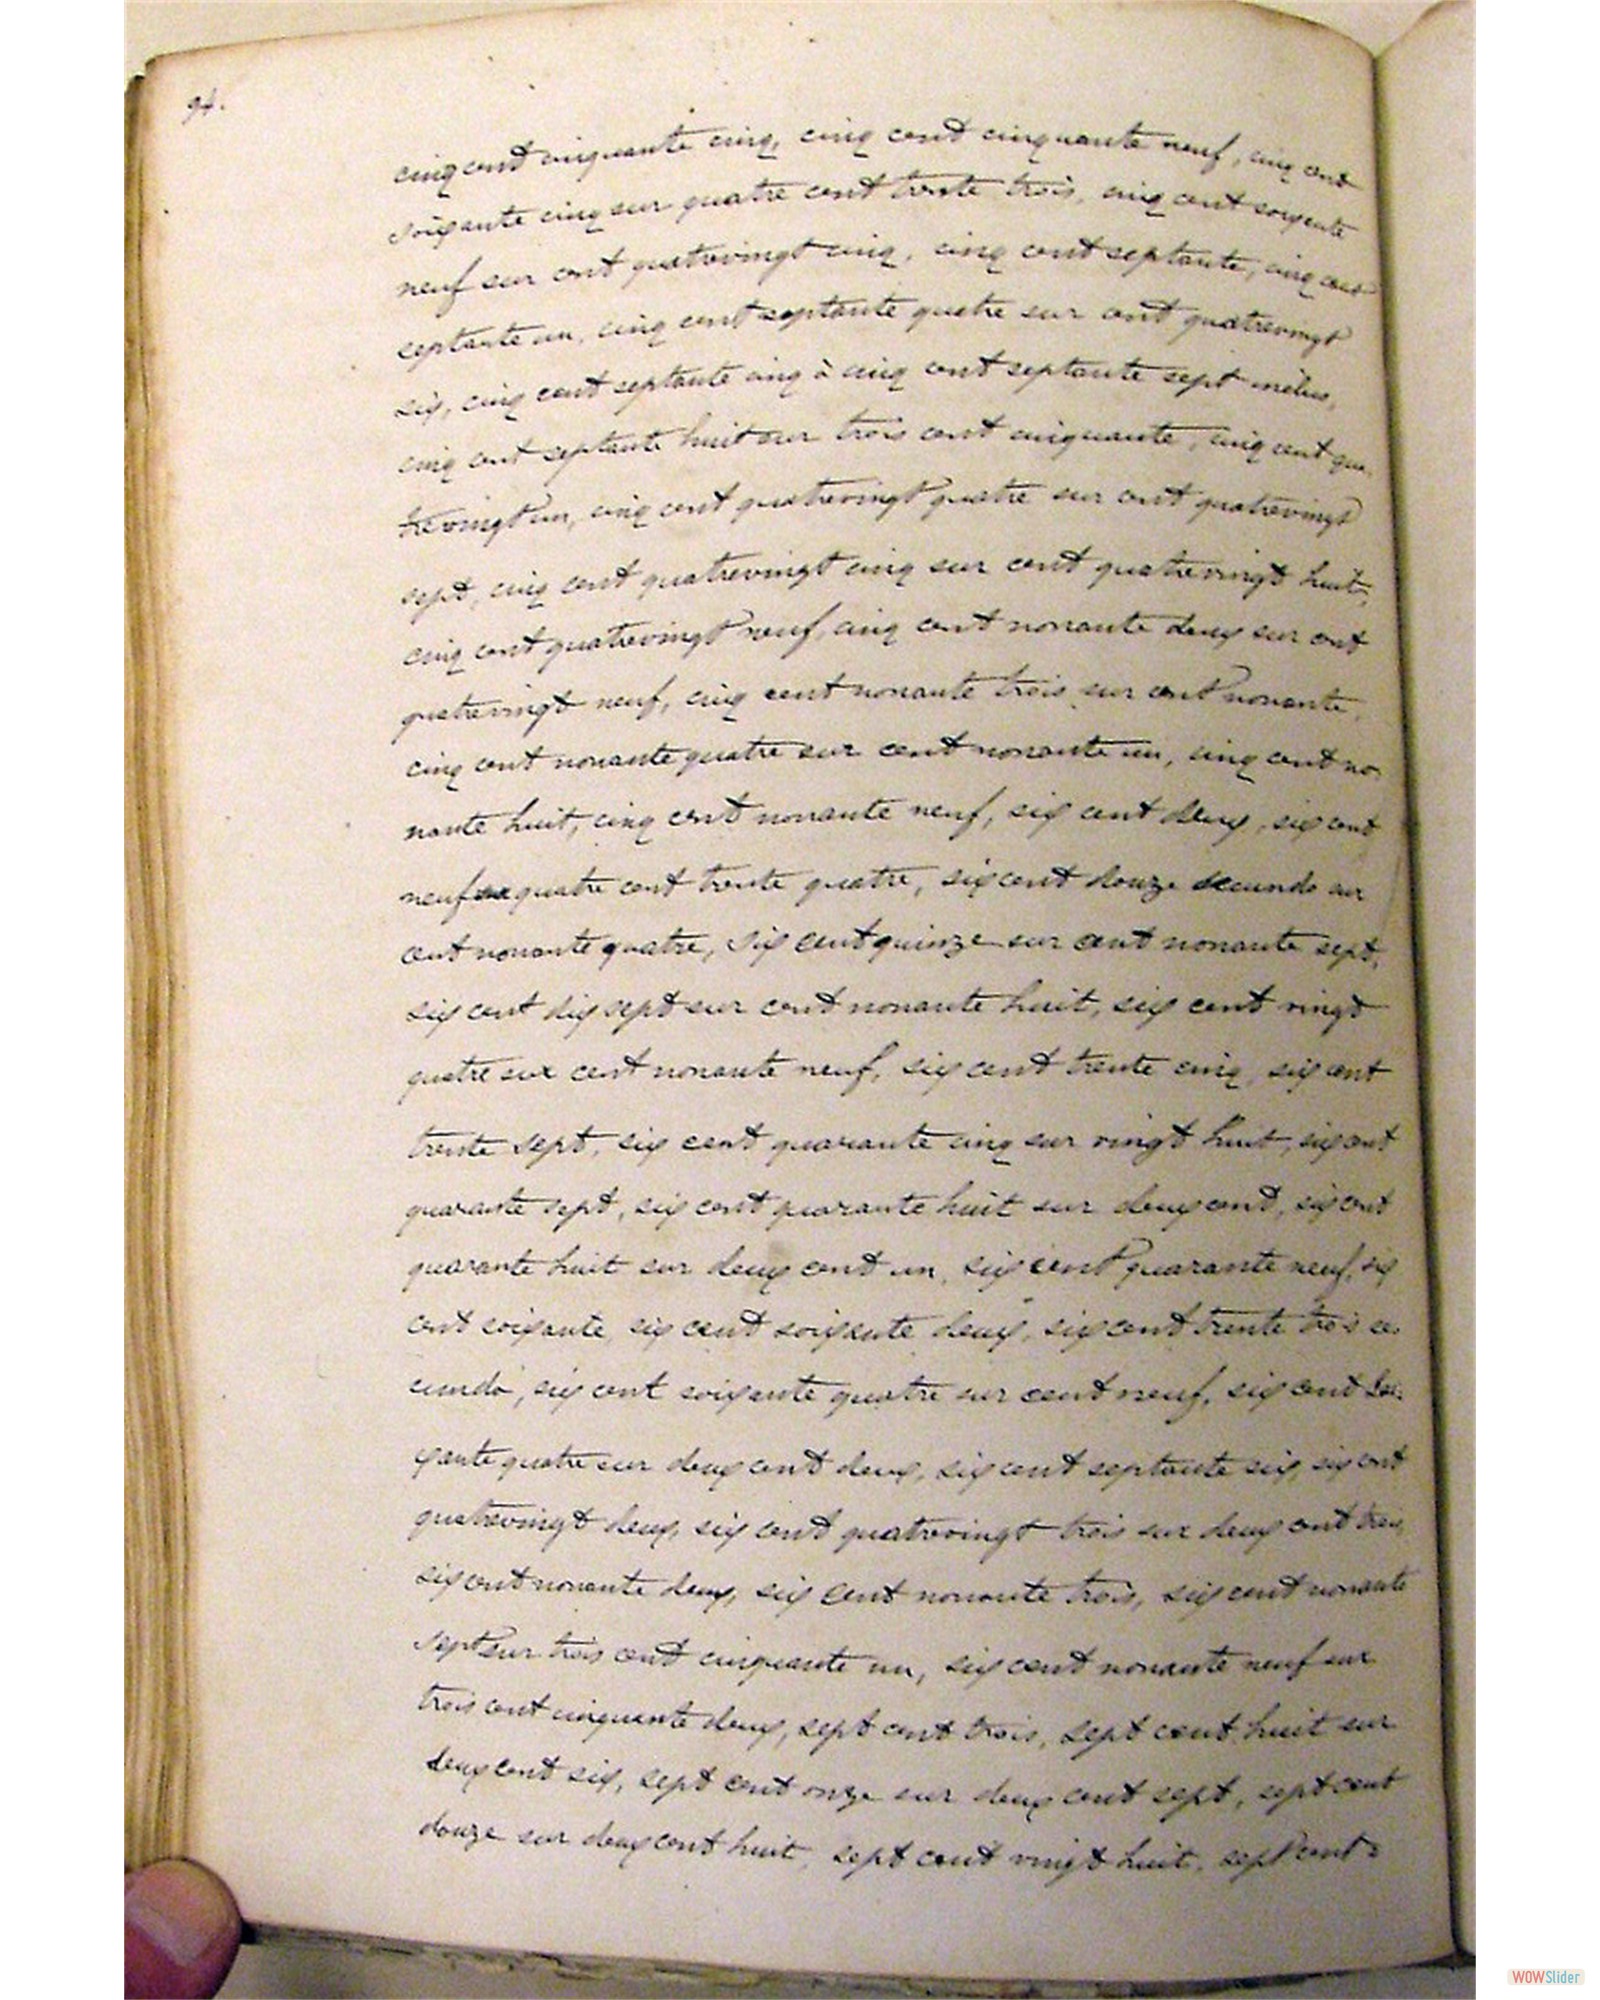 94.
cinq cent cinquante cinq, cinq cent cinquante neuf, cinq cent
soixante cinq sur quatre cent trente trois, cinq cent soixante
neuf sur cent quatrevingt cinq, cinq cent septante, cinq cent
septante un, cinq cent septante quatre sur cent quatrevingt
six, cinq cent septante cinq à cinq cent septante sept inclus,
cinq cent septante huit sur trois cent cinquante, cinq cent qua-
trevingt un, cinq cent quatrevingt quatre sur cent quatrevingt
sept, cinq cent quatrevingt cinq sur cent quatrevingt huit,
cinq cent quatrevingt neuf, cinq cent nonante deux sur cent
quatrevingt neuf, cinq cent nonante trois sur cent nonante,
cinq cent nonante quatre sur cent nonante un, cinq cent no-
nante huit, cinq cent nonante neuf, six cent deux, six cent
neuf sur quatre cent trente quatre, six cent douze secundo sur
cent nonante quatre, six cent quinze sur cent nonante sept,
six cent dix sept sur cent nonante huit, six cent vingt
quatre sur cent nonante neuf, six cent trente cinq, six cent
trente sept, six cent quarante cinq sur vingt huit, six cent
quarante sept, six cent quarante huit sur deux cent, six cent
quarante huit sur deux cent un, six cent quarante neuf, six
cent soixante, six cent soixante deux, six cent trente trois se-
cundo, six cent soixante quatre sur cent neuf, six cent soi-
xante quatre sur deux cent deux, six cent septante six, six cent
quatrevingt deux, six cent quatrevingt trois sur deux cent trois,
six cent nonante deux, six cent nonante trois, six cent nonante
sept sur trois cent cinquante un, six cent nonante neuf sur
trois cent cinquante deux, sept cent trois, sept cent huit sur
deux cent six, sept cent onze sur deux cent sept, sept cent
douze sur deux cent huit, sept cent vingt huit, sept cent
WOWSlider